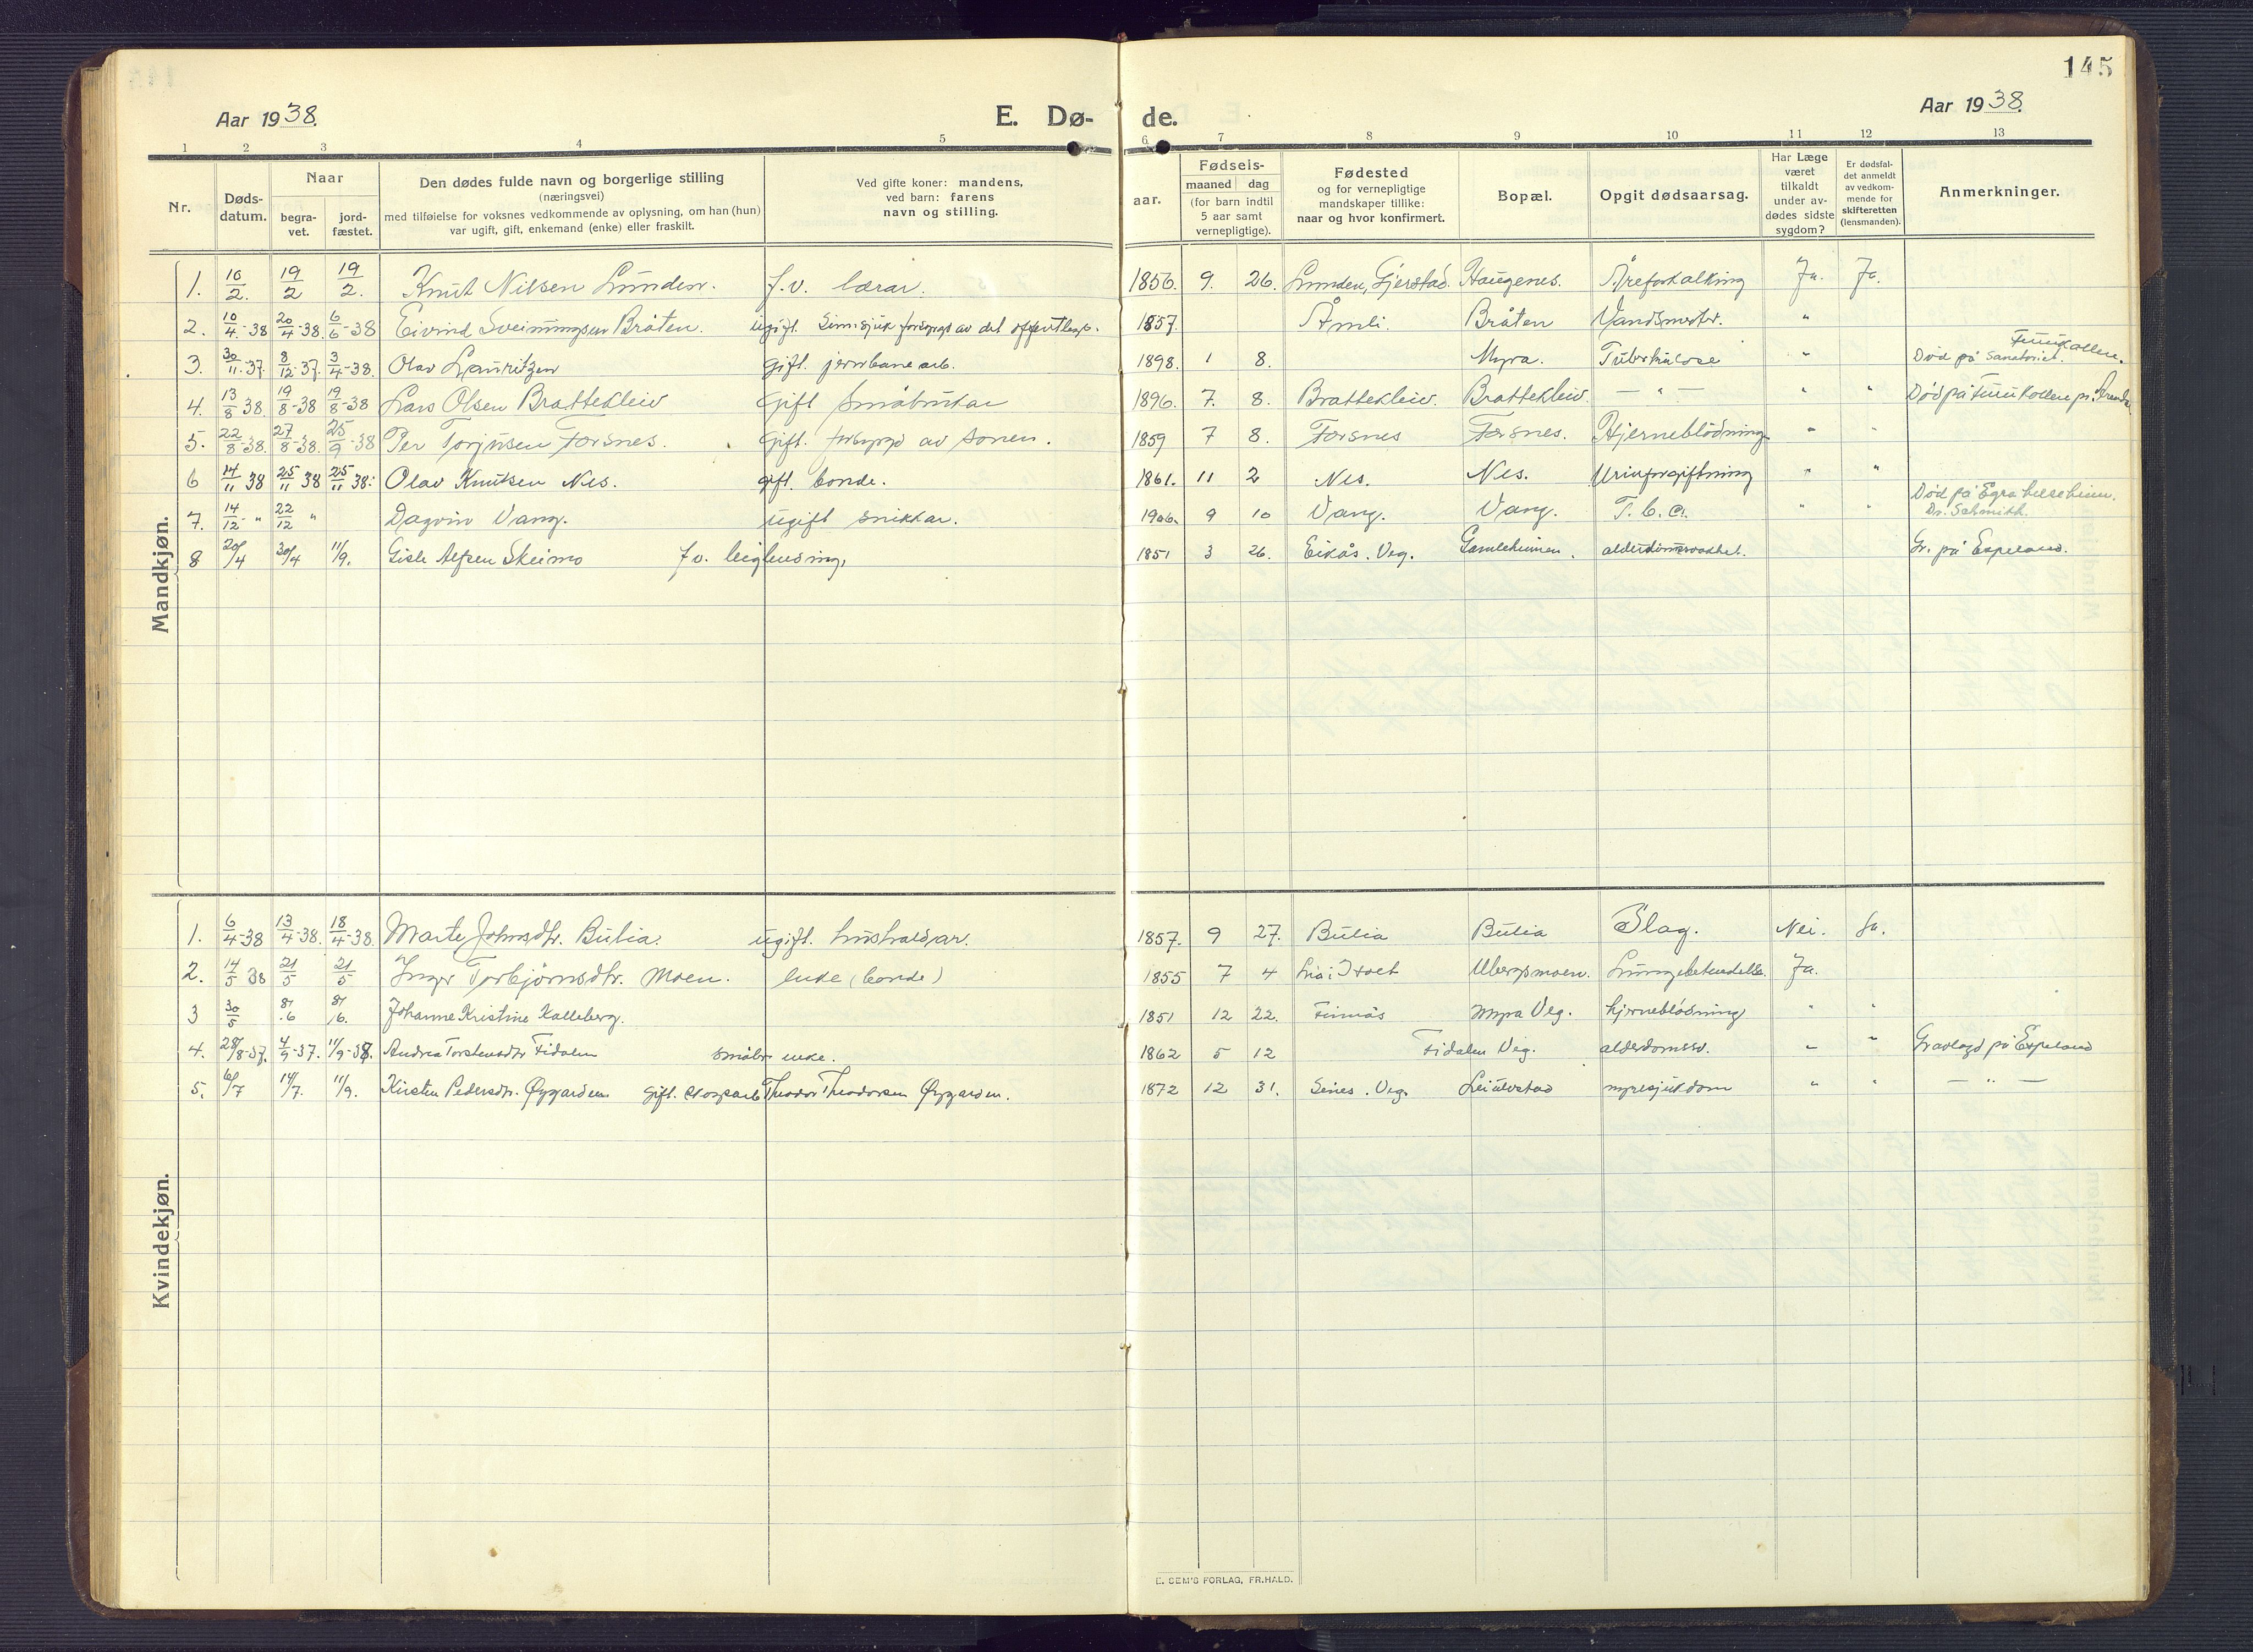 145
Aar 1938.
E. Dø-
de.
Aar 1938.
1 2 3 4 5 6 7 8 9 10 11 12 13
Nr.
Døds-
datum.
Naar
begra-
vet.
jord-
fæstet.
Den dødes fulde navn og borgerlige stilling
(næringsvei)
med tilføielse for voksnes vedkommende av oplysning, om han (hun)
var ugift, gift, enkemand (enke) eller fraskilt.
Ved gifte koner: mandens,
ved barn: farens
navn og stilling.
aar.
Fødsels-
maaned dag
(for barn indtil
5 aar samt
vernepligtige).
Fødested
og for vernepligtige
mandskaper tillike:
naar og hvor konfirmert.
Bopæl.
Opgit dødsaarsag.
Har Læge
været
tilkaldt
under av-
dødes sidste
sygdom?
Er dødsfal-
det anmeldt
av vedkom-
mende for
skifteretten
(lensmanden).
Anmerkninger.
Mandkjøn.
1. 10/2. 19/2 19/2. Knut Nilsen Lunden. f.v. lærar. 1856. 9. 26. Lunden, Gjerstad. Haugenes. Åreforkalking Ja. Ja.
2. 10/4-38 20/4-38. 6/6-38 Eivind Sveinungsen Bråten. ugift. Sinnsjuk forsørgt av det offentlege. 1857. Åmli. Bråten Vandsmoter. "
3. 30/11-37. 8/12-37. 3/4-38. Olav Lauritzen gift. jernbanearb. 1898. 1 8. Myra. Tuberkulose " Død på Sanatoriet.
4. 13/8 38. 19/8-38 19/8-38 Lars Olsen Brattekleiv Gift Småbrukar 1896. 7. 8. Brattekleiv. Brattekleiv. — " — " " Død på Tunkollen pr. Arendal
5. 22/8-38. 27/8-38. 25/9-38 Per Torjusen Forsnes. Gift. forsyrgd av sonen. 1859 7 8. Forsnes Forsnes. Hjerneblödning " "
6 14/11 38 25/11 38 25/11 38. Olav Knutsen Nes. gift. bonde. 1861. 11 2 Nes. Nes. Urinforgiftning " "
7. 14/12- " 22/12 " Dagvin Vang. ugift snikkar. 1906. 9 10 Vang. Vang. T.b.c. " " Død på Egra helseheim. Dr. Schmith.
8 20/4 30/4 11/9. Gisle Alfsen Skeimo f.v. leiglending, 1851 3 26. Eikås. Veg. Gamleheimen. alderdomsvakhet. Gr. på Espeland.
Kvindekjøn.
1. 6/4-38 13/4-38. 18/4-38. Marte Johnsdtr. Bulia. ugift. hushaldar. 1857. 9 27. Bulia Bulia Slag. Nei. Ja.
2. 14/5 38 21/5 21/5 Inger Torbjörnsdtr. Moen. enke (bonde) 1855 7 4 Ubergsmoen. Lungebetendelse. Ja.
3 30/5 8/6 8/6. Johanne Kristine Kalleberg. 1851 12 22. Finnås Myra Veg. hjerneblödning " "
4. 28/8-37. 4/9-37. 11/9-38. Andrea Torstensdtr Fidalen småbr enke. 1862 5 12 Fidalen Veg. alderdomssv. " " Gravlagd på Espeland
5. 6/7 14/7. 11/9. Kirsten Pedersdtr. Øygarden gift. skogsarb Theodor Theodorsen Øygarden. 1872 12 31. Seines. Veg. Leiulvstad nyresjukdom " " — " —
E. SEM'S FORLAG, FR.HALD.